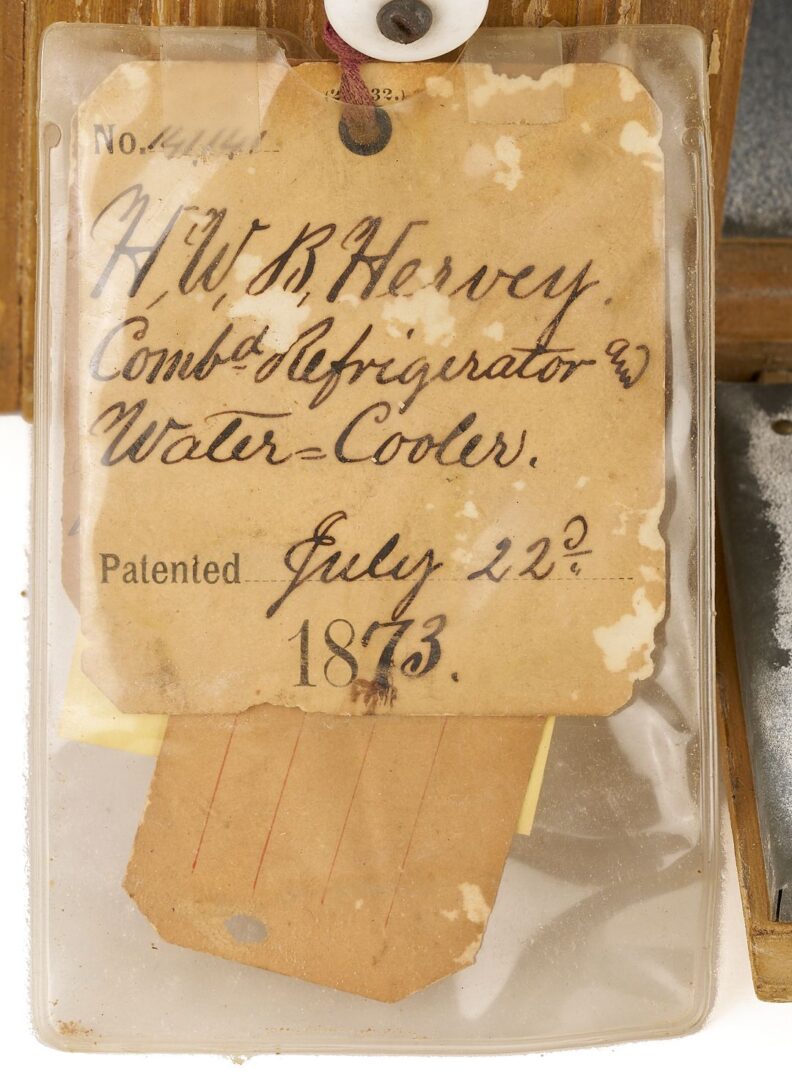 No. 141,141
H, W, B, Hervey.
Combd Refrigerator and
Water=Cooler.
Patented July 22d
1873.